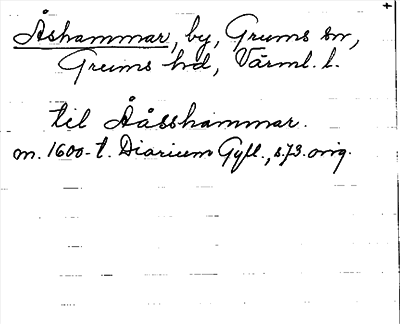 Åshammar, by, Grums sn,
Grums hd, Värml. l.
til Ååsshammar.
m. 1600-t. Diarium Gyll., s. 73. orig.